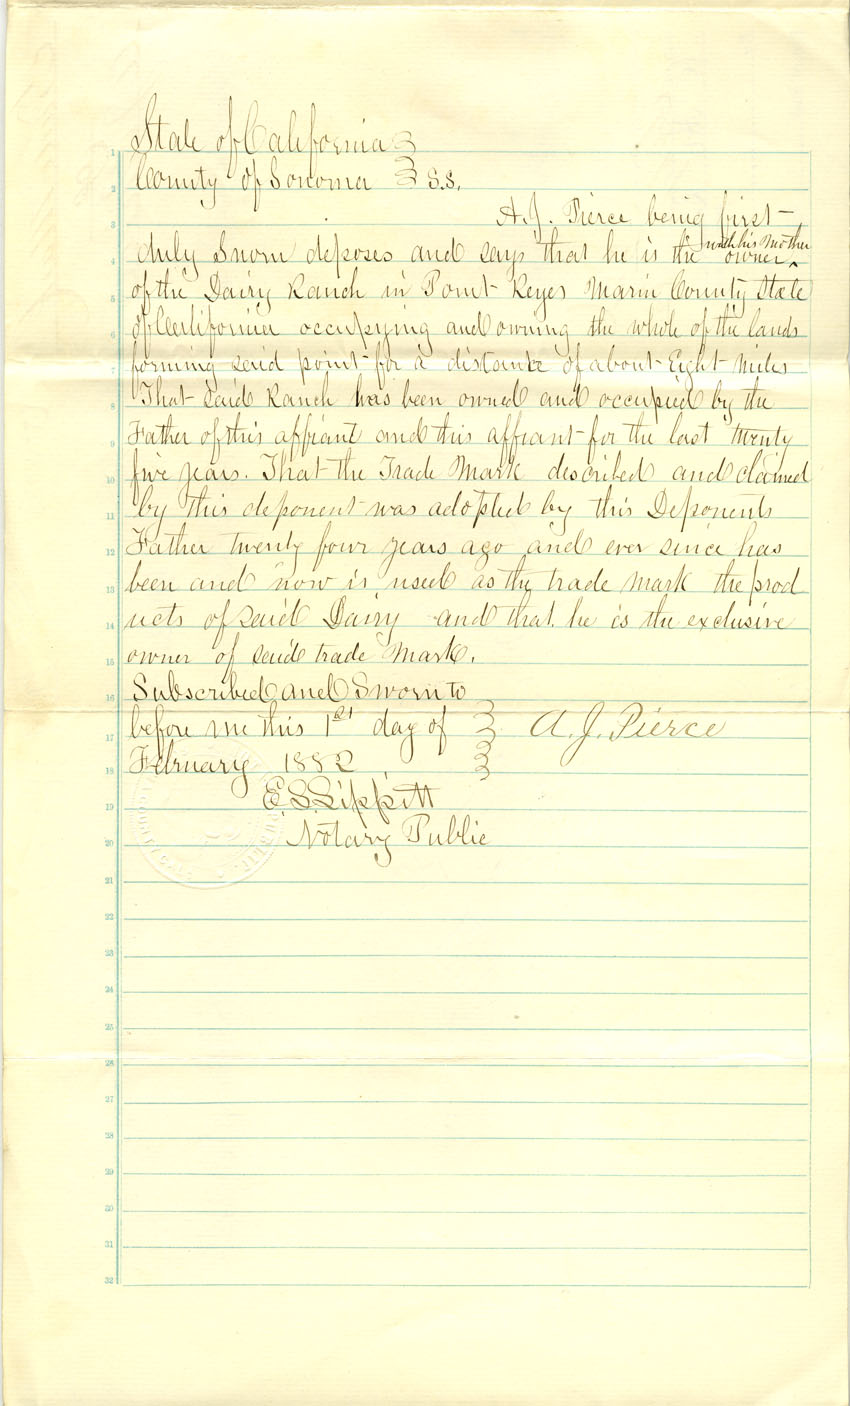 State of California
County of Sonoma } S.S.
A.J. Pierce being first
duly Sworn deposes and says that he is the owner ^ with his Mother
of the Dairy Ranch in Point Reyes Marin County State
of California occupying and owning the whole of the lands
forming said point for a distance of about Eight Miles
That said Ranch has been owned and occupied by the
Father of this affiant and this affiant for the last twenty
five years. That the Trade Mark described and claimed
by this deponent was adopted by this Deponents
Father twenty four years ago and ever since has
been and now is used as the trade mark the prod
ucts of said Dairy and that he is the exclusive
owner of said trade Mark.
Subscribed and Sworn to
before me this 1st day of } A. J. Pierce
February 1882
E.S. Lippitt
Notary Public
1
2
3
4
5
6
7
8
9
10
11
12
13
14
15
16
17
18
19
20
21
22
23
24
25
26
27
28
29
30
31
32